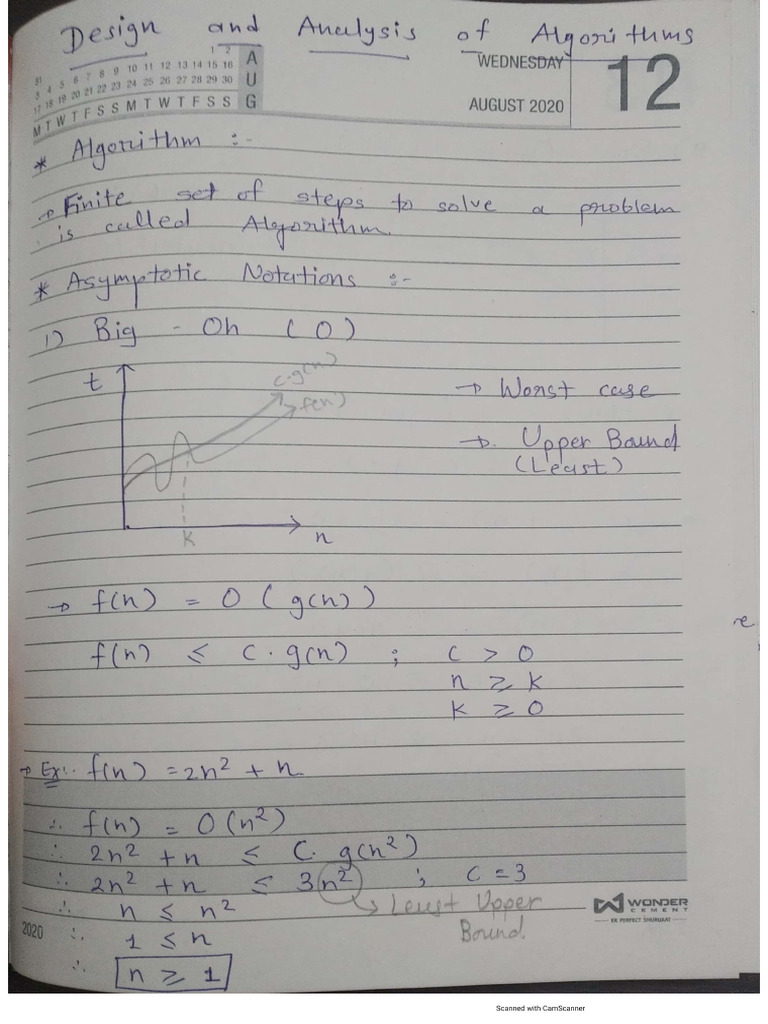 Design and Analysis of Algorithms
WEDNESDAY
AUGUST 2020
12
31 1 2
3 4 5 6 7 8 9 10 11 12 13 14 15 16
17 18 19 20 21 22 23 24 25 26 27 28 29 30
M T W T F S S M T W T F S S
AUG
* Algorithm :-
→ Finite set of steps to solve a problem
is called Algorithm.
* Asymptotic Notations :-
1) Big - Oh (O)
t
c.g(n)
f(n)
K
n
→ Worst case
→ Upper Bound
(Least)
→ f(n) = O (g(n))
f(n) ≤ C . g(n) ; C > 0
n ≥ k
k ≥ 0
→ Ex:. f(n) = 2n² + n
∴ f(n) = O(n²)
∴ 2n² + n ≤ C. g(n²)
∴ 2n² + n ≤ 3n² ; C = 3
∴ n ≤ n² → Least Upper
Bound.
∴ 1 ≤ n
∴ n ≥ 1
WONDER
CEMENT
EK PERFECT SHURUAAT
2020
Scanned with CamScanner